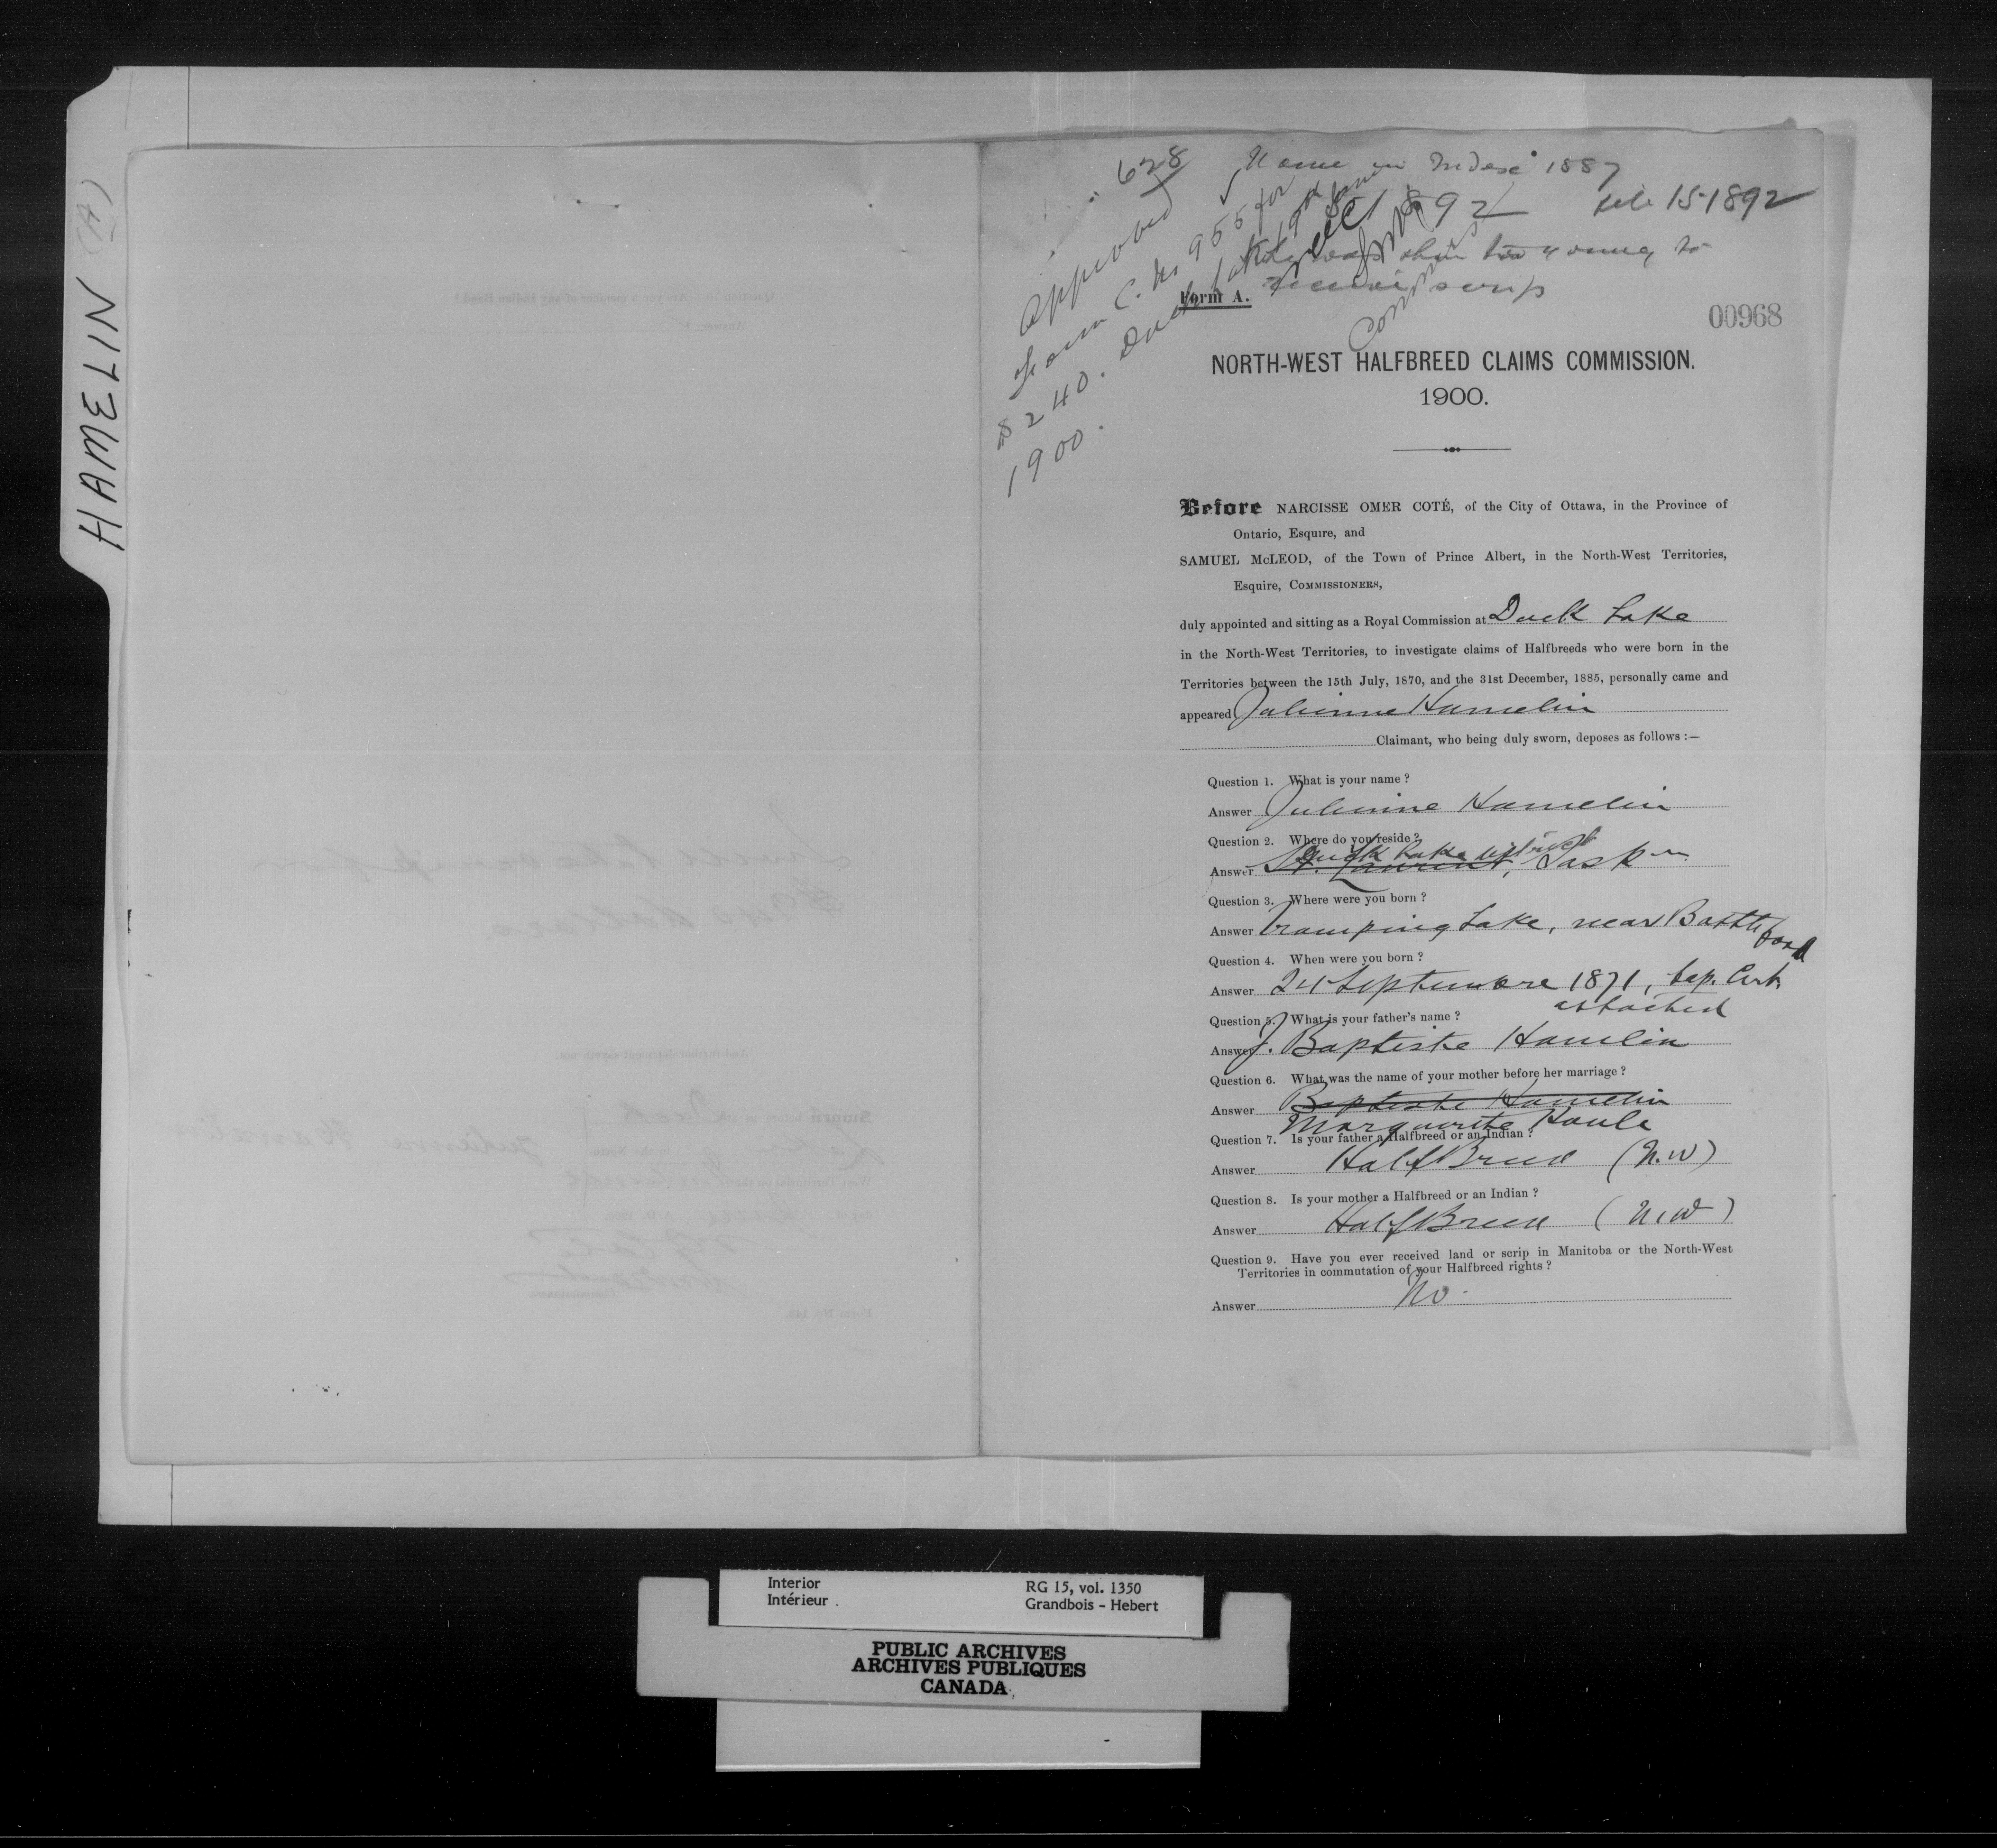 HAMELIN (A)
628
Name in Index 1887
Dec 1892 Feb 15-1892
but was then too young to
receive scrip
Approved
Form C. No 955 for
$240. Duck Lake 19th June
1900.
Commrs
Form A.
00968
NORTH-WEST HALFBREED CLAIMS COMMISSION.
1900.
Before NARCISSE OMER COTÉ, of the City of Ottawa, in the Province of
Ontario, Esquire, and
SAMUEL McLEOD, of the Town of Prince Albert, in the North-West Territories,
Esquire, COMMISSIONERS,
duly appointed and sitting as a Royal Commission at Duck Lake
in the North-West Territories, to investigate claims of Halfbreeds who were born in the
Territories between the 15th July, 1870, and the 31st December, 1885, personally came and
appeared Julienne Hamelin
Claimant, who being duly sworn, deposes as follows :—
Question 1. What is your name ?
Answer Julienne Hamelin
Question 2. Where do you reside ?
Duck Lake district
Answer St. Laurent, Sask
Question 3. Where were you born ?
Answer Tramping Lake, near Battleford
Question 4. When were you born ?
Answer 24 Septembre 1871, bap. Cert.
attached
Question 5. What is your father's name ?
Answer J. Baptiste Hamelin
Question 6. What was the name of your mother before her marriage ?
Answer Baptiste Hamelin
Marguerite Houle
Question 7. Is your father a Halfbreed or an Indian ?
Answer HalfBreed (N.W)
Question 8. Is your mother a Halfbreed or an Indian ?
Answer HalfBreed (N.W)
Question 9. Have you ever received land or scrip in Manitoba or the North-West
Territories in commutation of your Halfbreed rights ?
Answer No.
Interior RG 15, vol. 1350
Intérieur Grandbois - Hebert
PUBLIC ARCHIVES
ARCHIVES PUBLIQUES
CANADA